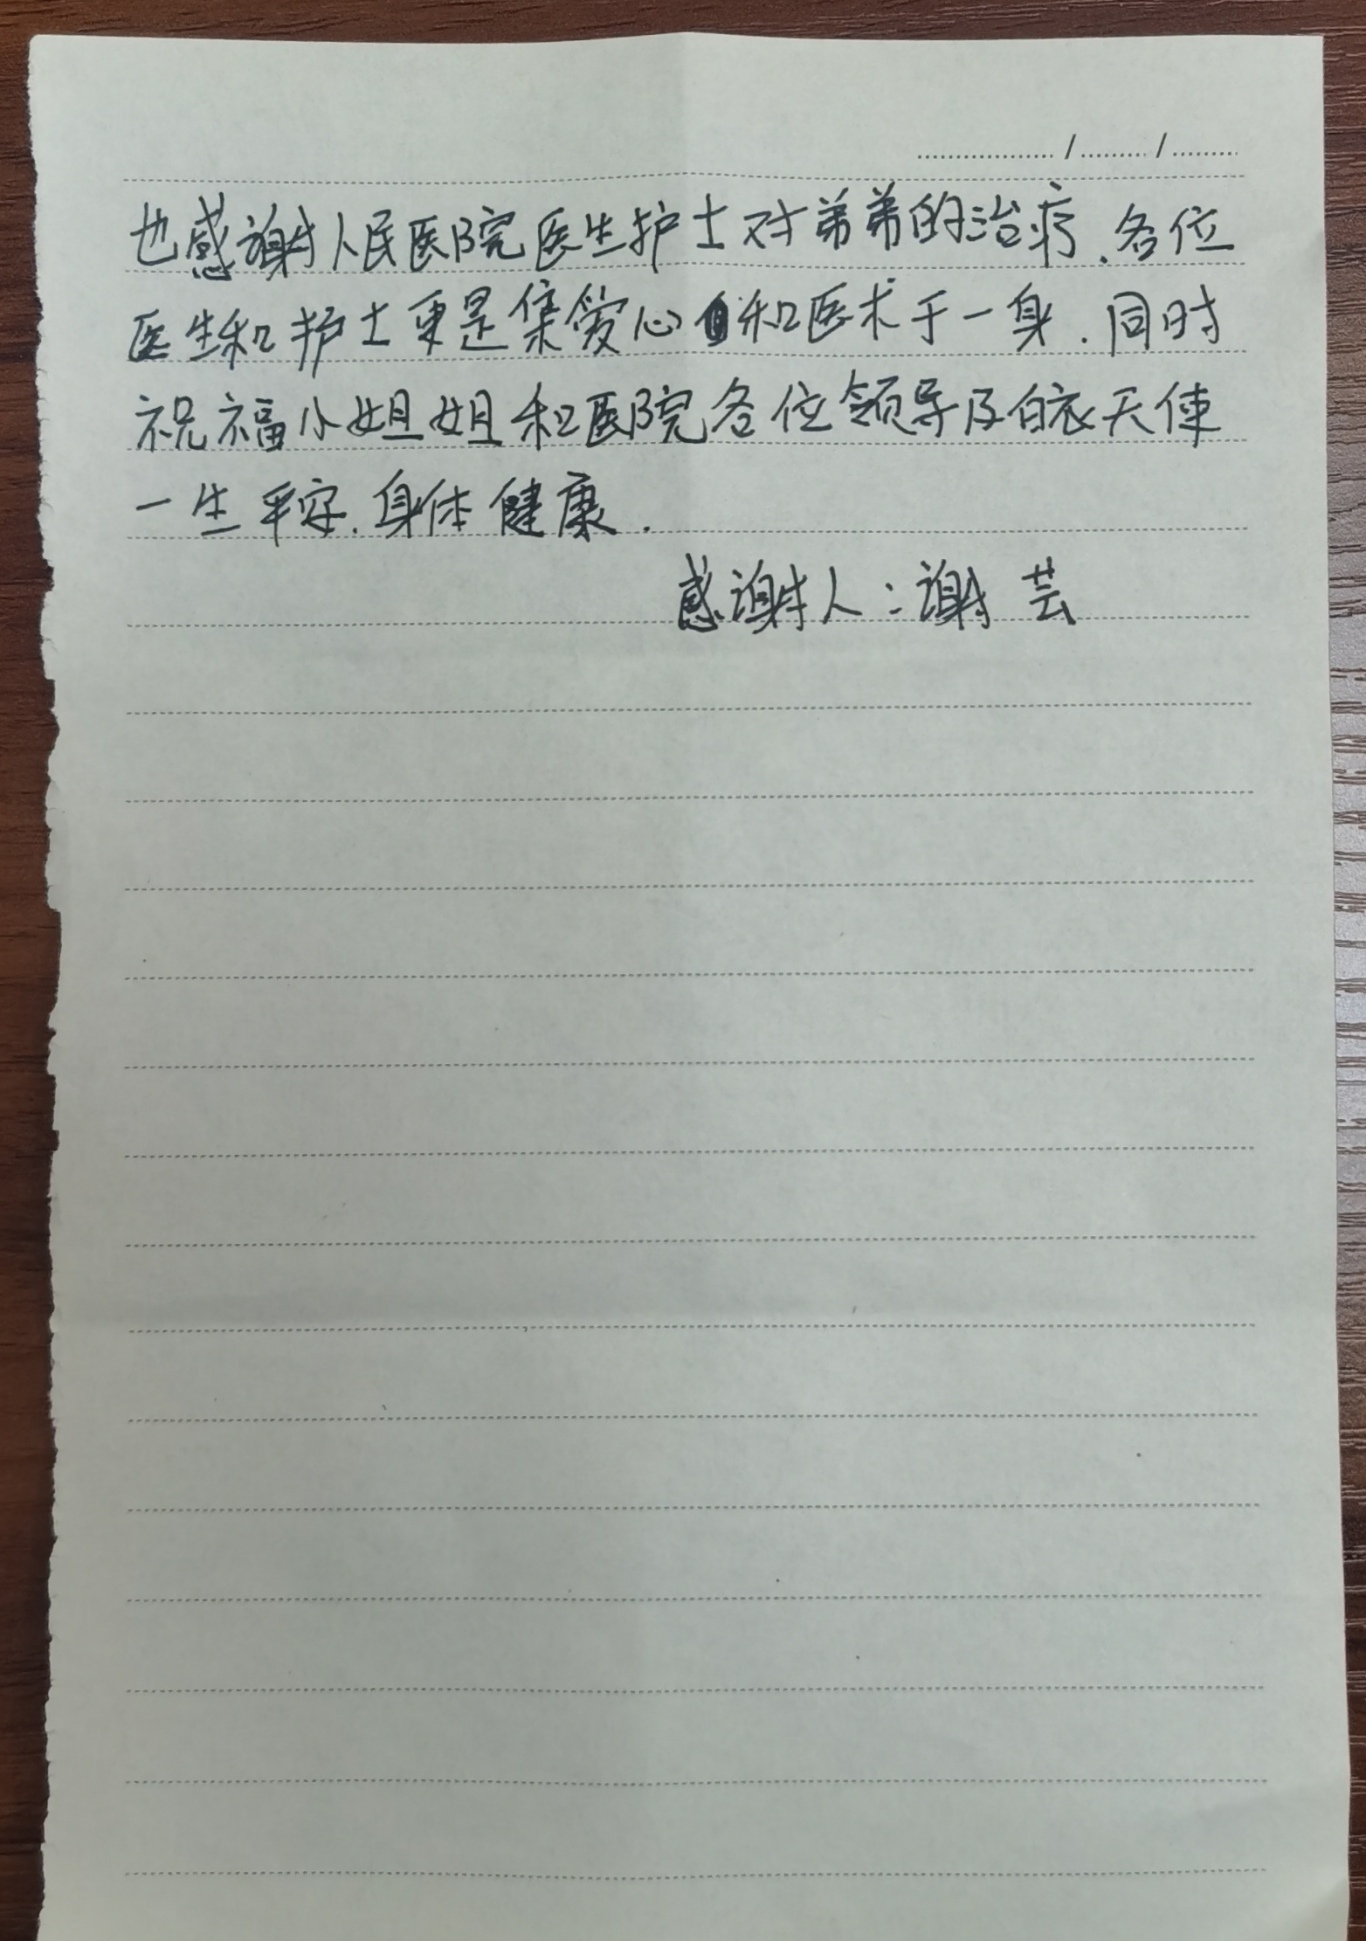 也感谢人民医院医生护士对弟弟的治疗.各位
医生和护士更是集爱心和医术于一身.同时
祝福小姐姐和医院各位领导及白衣天使
一生平安.身体健康.
感谢人:谢芸